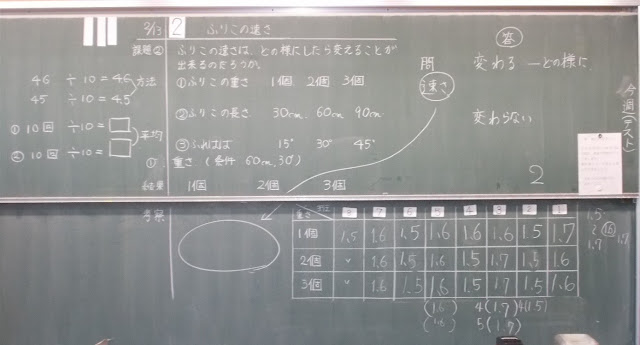 3/13 2 ふりこの速さ
課題② ふりこの速さは、どの様にしたら変えることが
出来るのだろうか。
①ふりこの重さ 1個 2個 3個
②ふりこの長さ 30cm 60cm 90cm
③ふれはば 15° 30° 45°
① 重さ (条件 60cm, 30°)
結果 1個 2個 3個
考察
46 ÷10 = 4.6
方法
45 ÷10 = 4.5
① 10回 ÷10 =
平均
② 10回 ÷10 =
問
速さ
答
変わる ーどの様に
変わらない
今週(テスト)
2
重さ 8 7 6 5 4 3 2 1
1個 1.5 1.6 1.5 1.6 1.6 1.6 1.5 1.7
2個 〃 1.6 1.5 1.6 1.5 1.7 1.5 1.6
3個 〃 1.6 1.5 1.6 1.5 1.7 1.5 1.6
(1.6) 4(1.7) 4(1.5)
(1.6) 5(1.7)
1.5
2 1.6
1.7 1.7